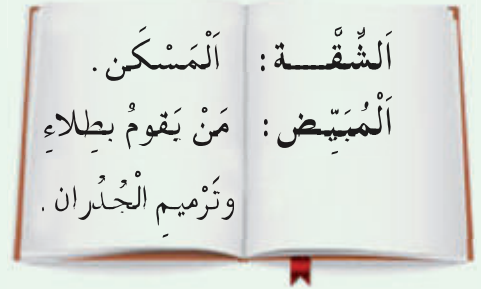 اَلشِّقَّـــة : اَلْمَسْكَن .
اَلْمُبَيِّـض : مَنْ يَقومُ بطِلاءِ
وتَرْميمِ الْجُدُران .